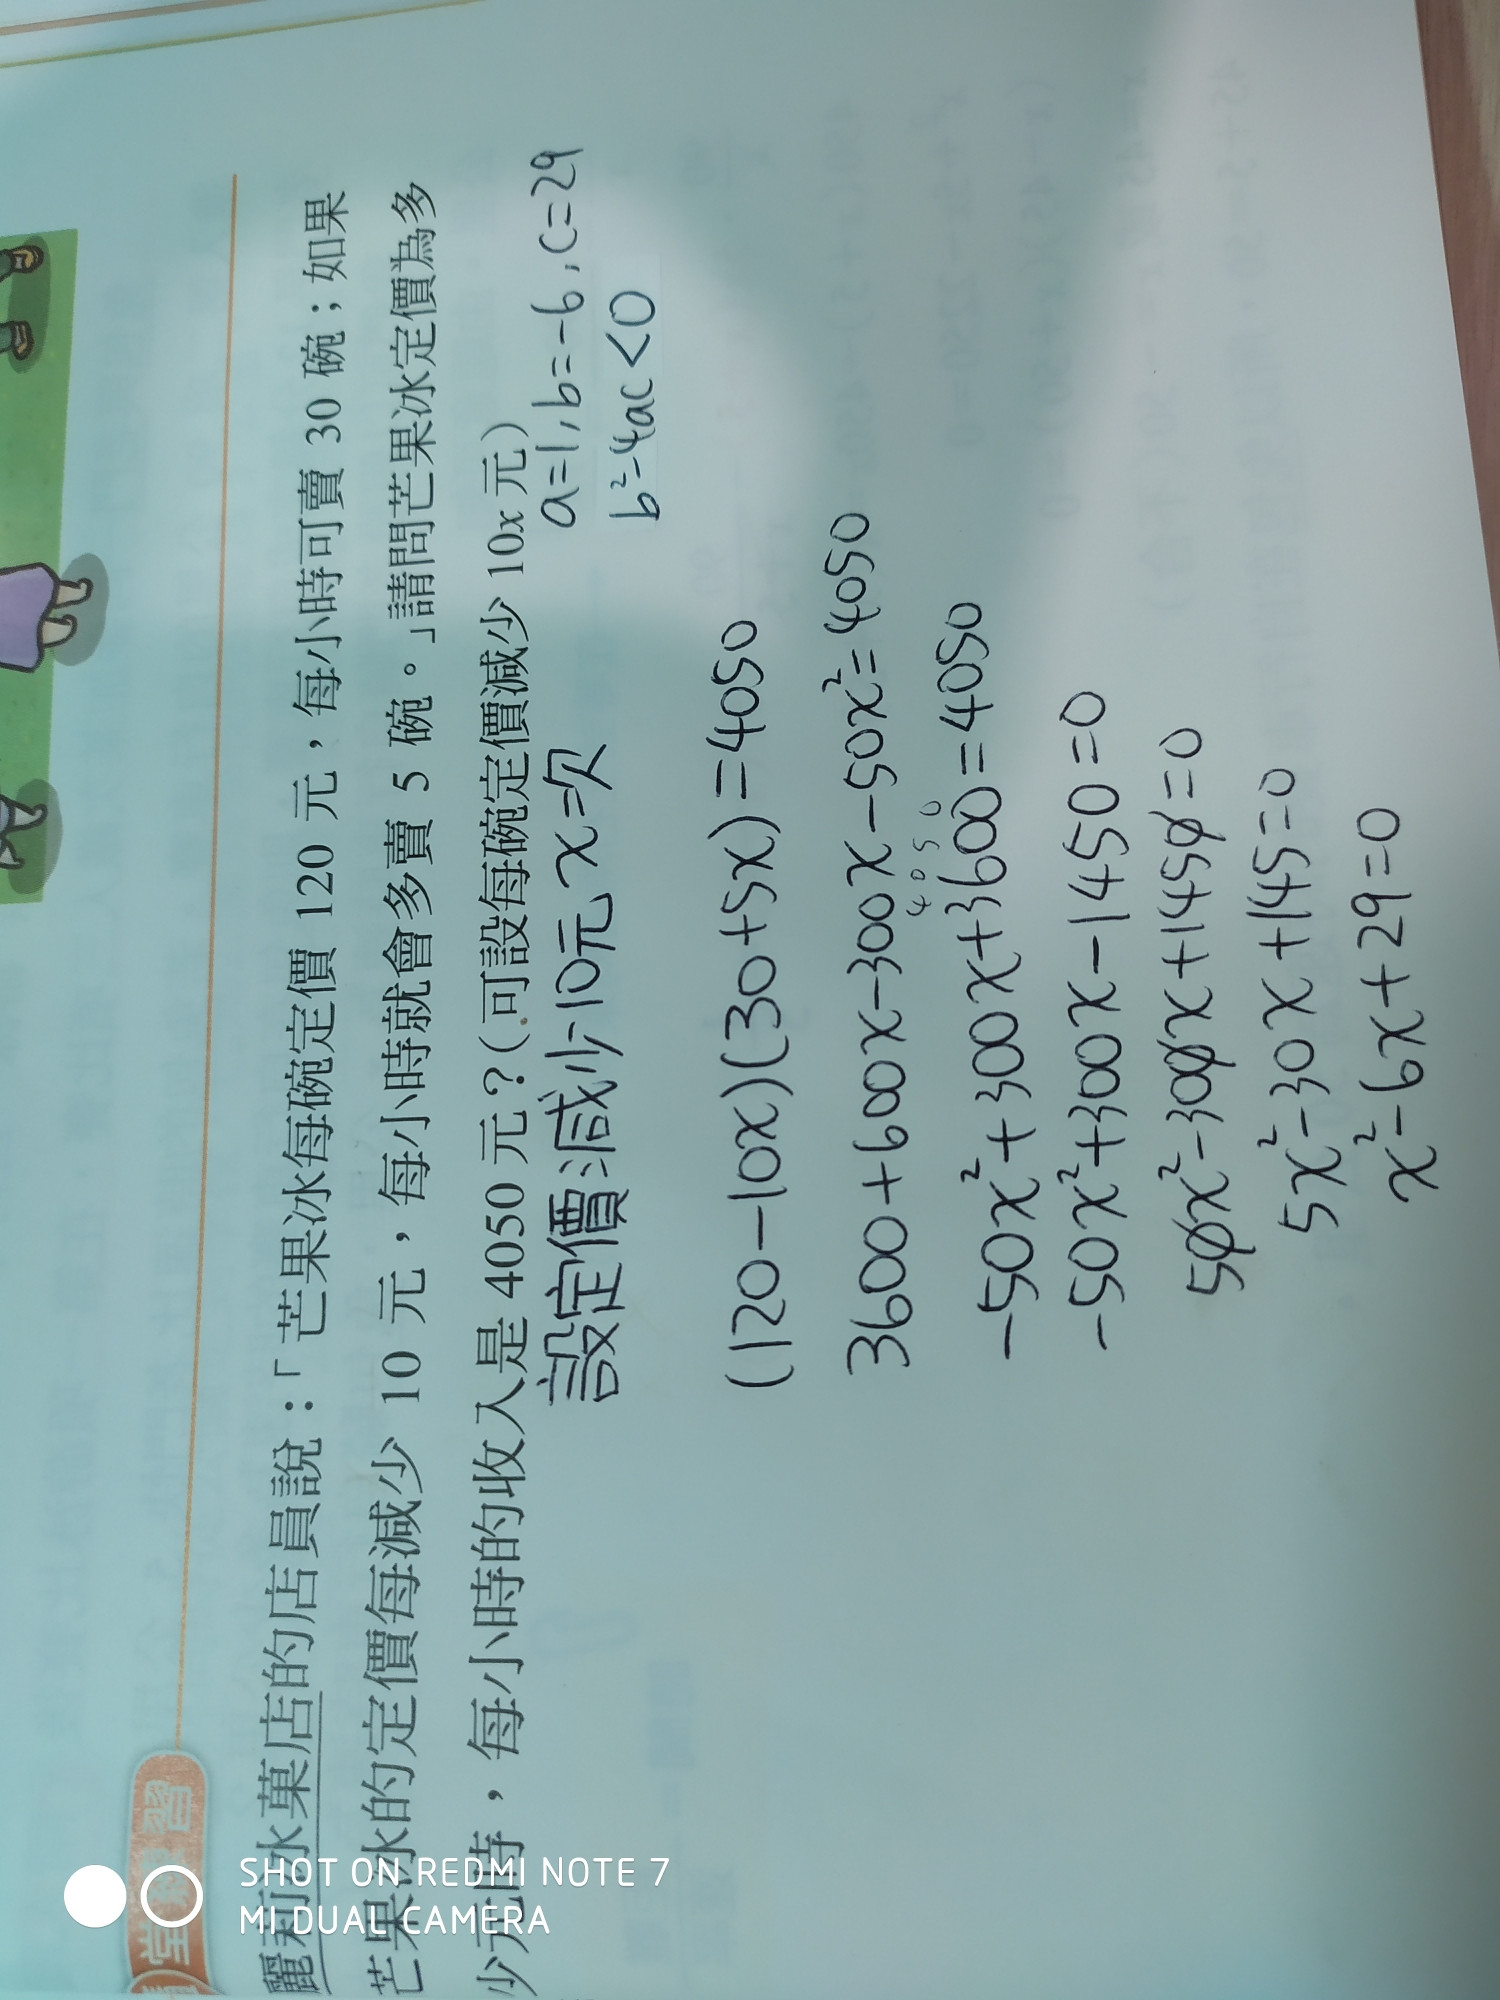 堂練習
麗莉冰菓店的店員說：「芒果冰每碗定價 120 元，每小時可賣 30 碗；如果
芒果冰的定價每減少 10 元，每小時就會多賣 5 碗。」請問芒果冰定價為多
少元時，每小時的收入是 4050 元？(可設每碗定價減少 10x 元)
設定價減少10元x=次
a=1, b=-6, c=29
b²-4ac<0
(120-10x)(30+5x)=4050
3600+600x-300x-50x²=4050
4050
-50x²+300x+3600=4050
-50x²+300x-1450=0
50x²-300x+1450=0
5x²-30x+145=0
x²-6x+29=0
SHOT ON REDMI NOTE 7
MI DUAL CAMERA